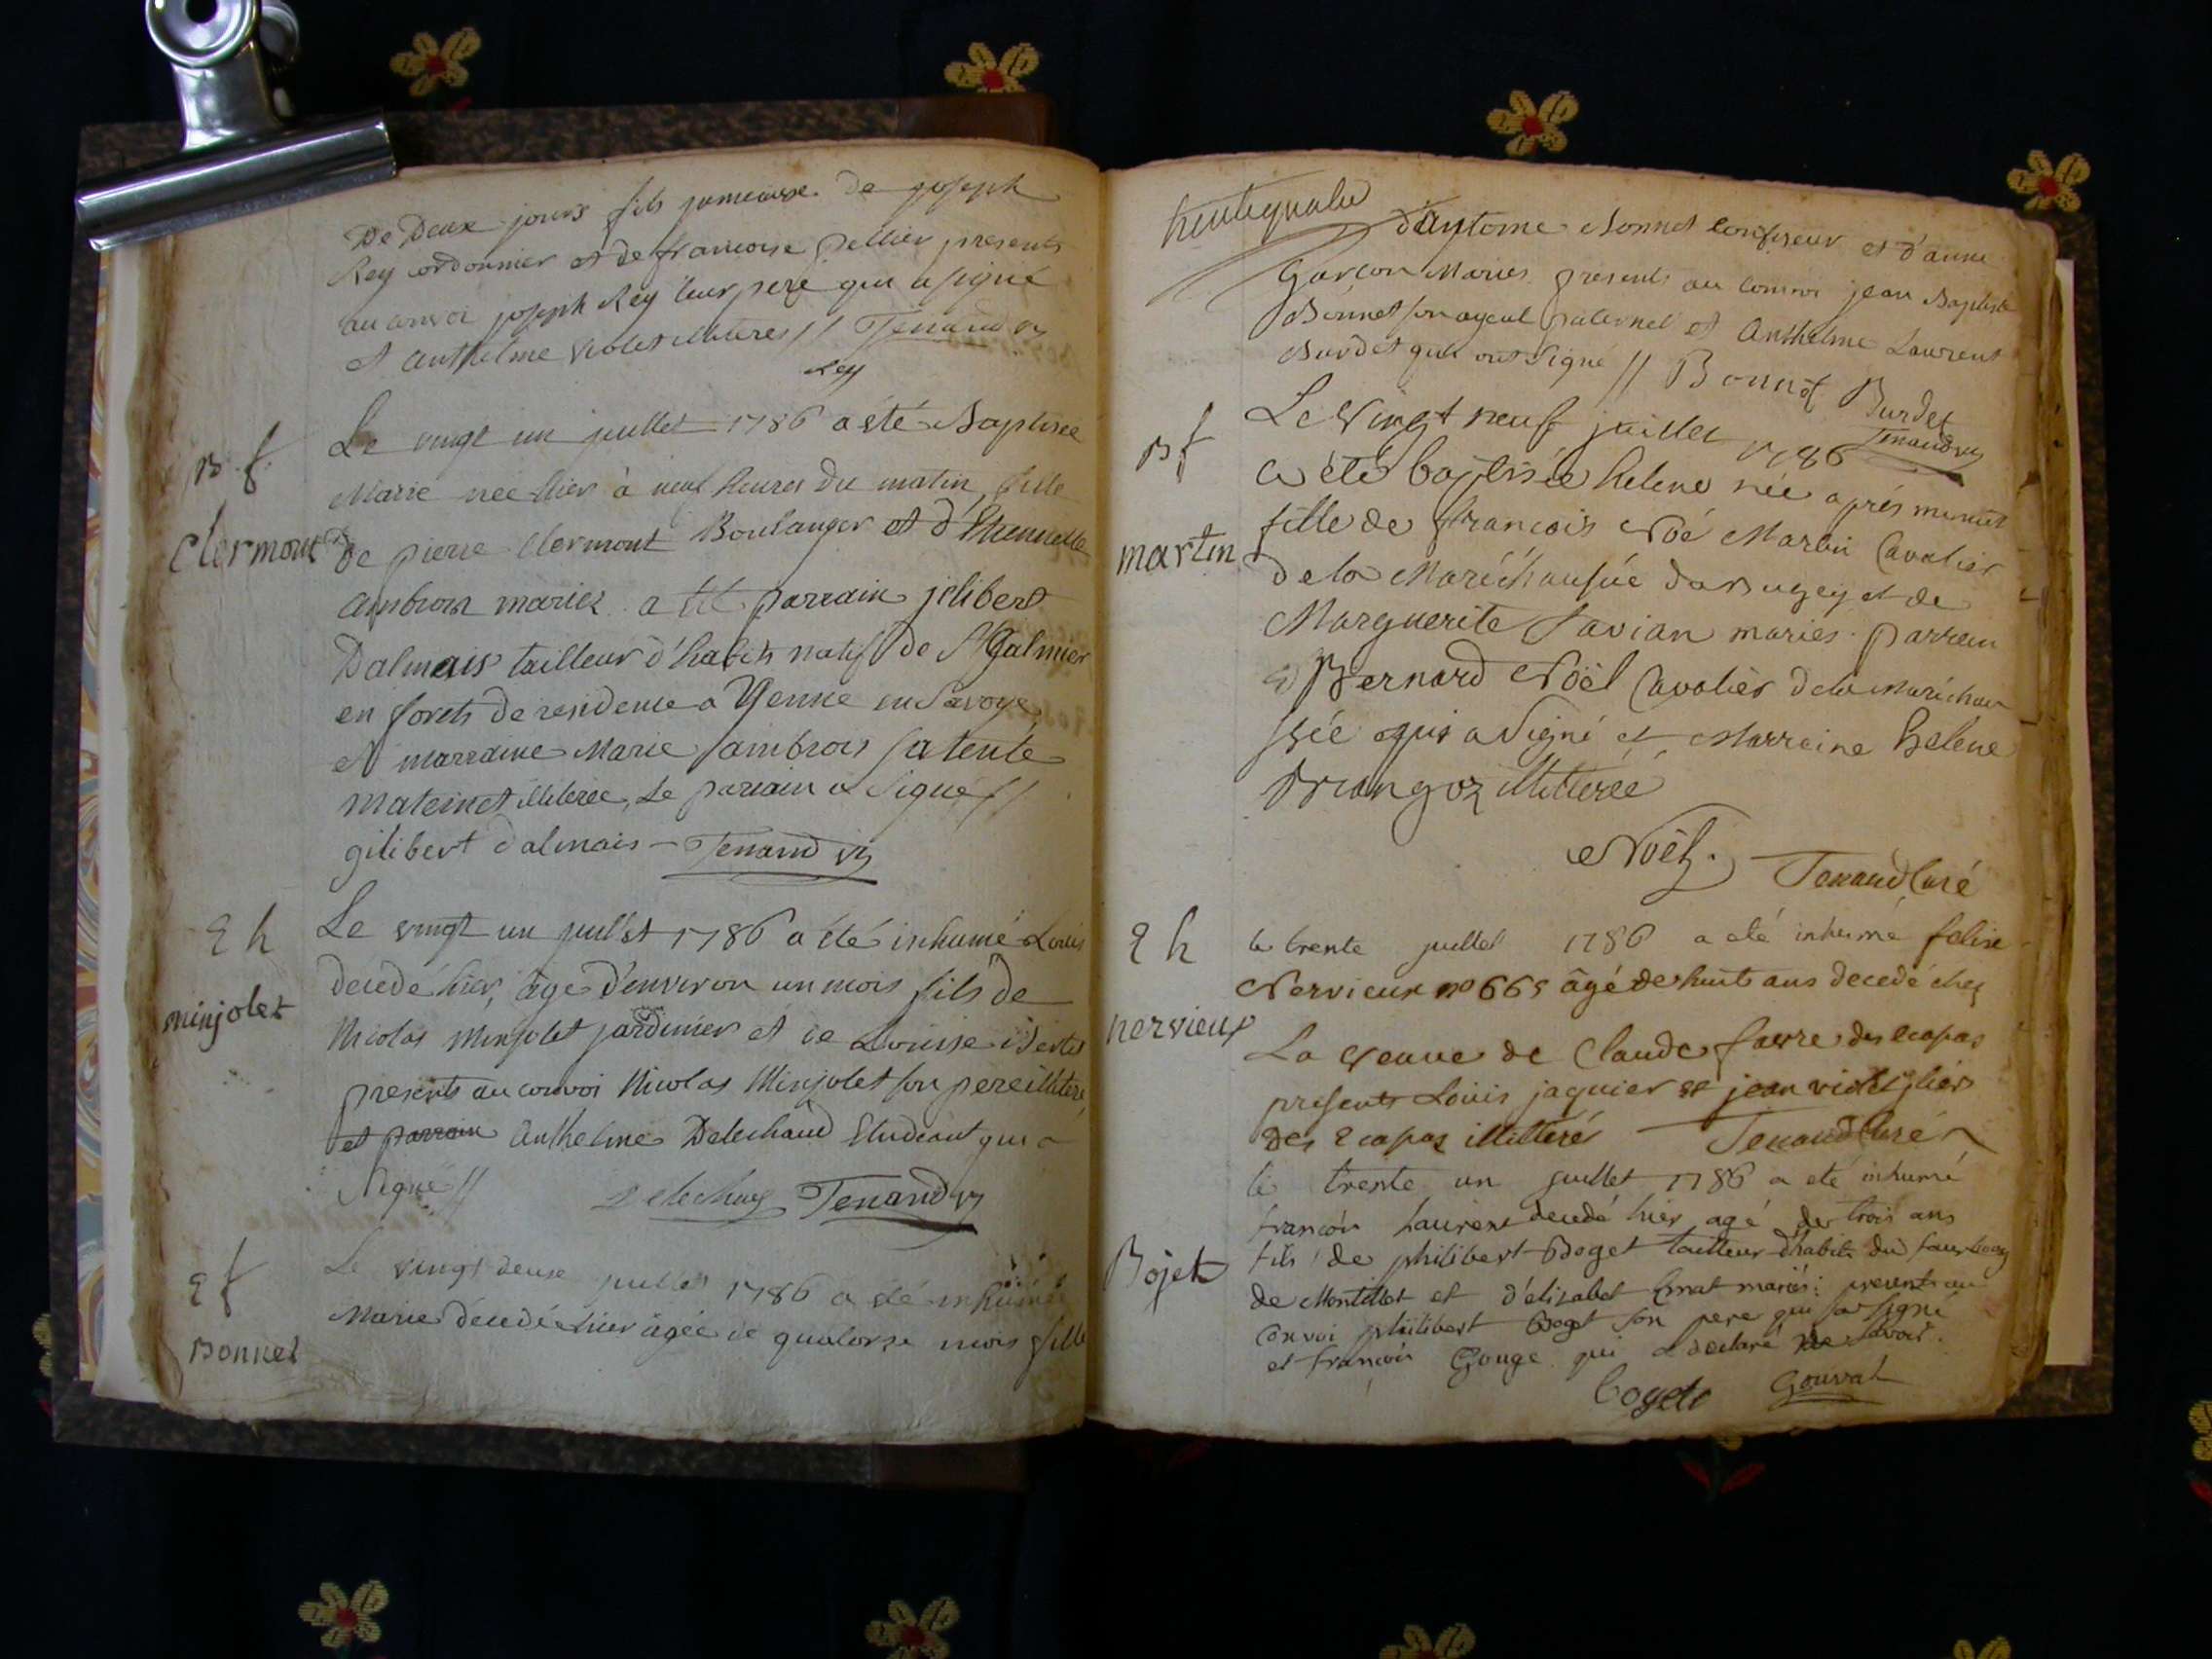 De Deux jours fils jumeaux de joseph
Rey cordonnier et de francoise pellier presents
au convoi joseph Rey leur pere qui a signé
et anthelme violet illiteres // Tenand vic
Rey
B. f.
Le vingt un juillet 1786 a été Baptisée
Marie née hier à neuf heures du matin, fille
Clermont
De pierre Clermont Boulanger et d'Etiennette
ambrois mariez a été parrain jilibert
Dalmais tailleur d'habits natif de St Galmier
en forets de residence a Yenne en Savoye
et marraine Marie ambrois sa tente
maternet illiterée, Le parrain a Signé //
gilibert dalmais – Tenand vic
E h
Le vingt un juillet 1786 a été inhumé Louis
decedé hier, âgé d'environ un mois fils de
minjolet
Nicolas Minjolet jardinier et de Louise
presents au convoi Nicolas Minjolet son pere illitere
et parrain Anthelme Delechaud Etudiant qui a
Signé // Delechaud Tenand vic
E f
Le vingt deux juillet 1786 a été inhumée
Marie décedée hier âgée de quatorze mois fille
Bonnet
trentequatre
d'Antoine Bonnet confiseur et d'anne
Garcon Mariés presents au convoi jean Baptiste
Bonnet son ayeul paternel et Anthelme Laurent
Burdet qui ont Signé // Bonnet Burdet
Tenand vic
B f
Le Vingt neuf juillet 1786
a été baptisée helene née aprés minuit
fille de francois Noé Martin Cavalier
martin
de la Maréchaussée du Bugey et de
Marguerite Savian mariés. parrein
Bernard Noël Cavalier de la maréchau
ssée qui a Signé et Marraine helene
Brangoz illitterée
Noël. Tenand Curé
E h
le trente juillet 1786 a été inhumé felix
Nervieux no 665 âgé de huit ans decedé chez
nervieux
La veuve de Claude favre des ecapas
presents Louis jaquier et jean violet
des Ecapas illitteré Tenand Curé
le trente un juillet 1786 a eté inhumé
francois Laurent decedé hier agé de trois ans
Bojet
fils de philibert Boget tailleur d'habits du fauxbourg
de Montillet et d'élizabet mariés: presents au
convoi philibert Boget son pere qui a signé
et françois Gouge qui a déclaré ne savoir.
boget Gouvrat